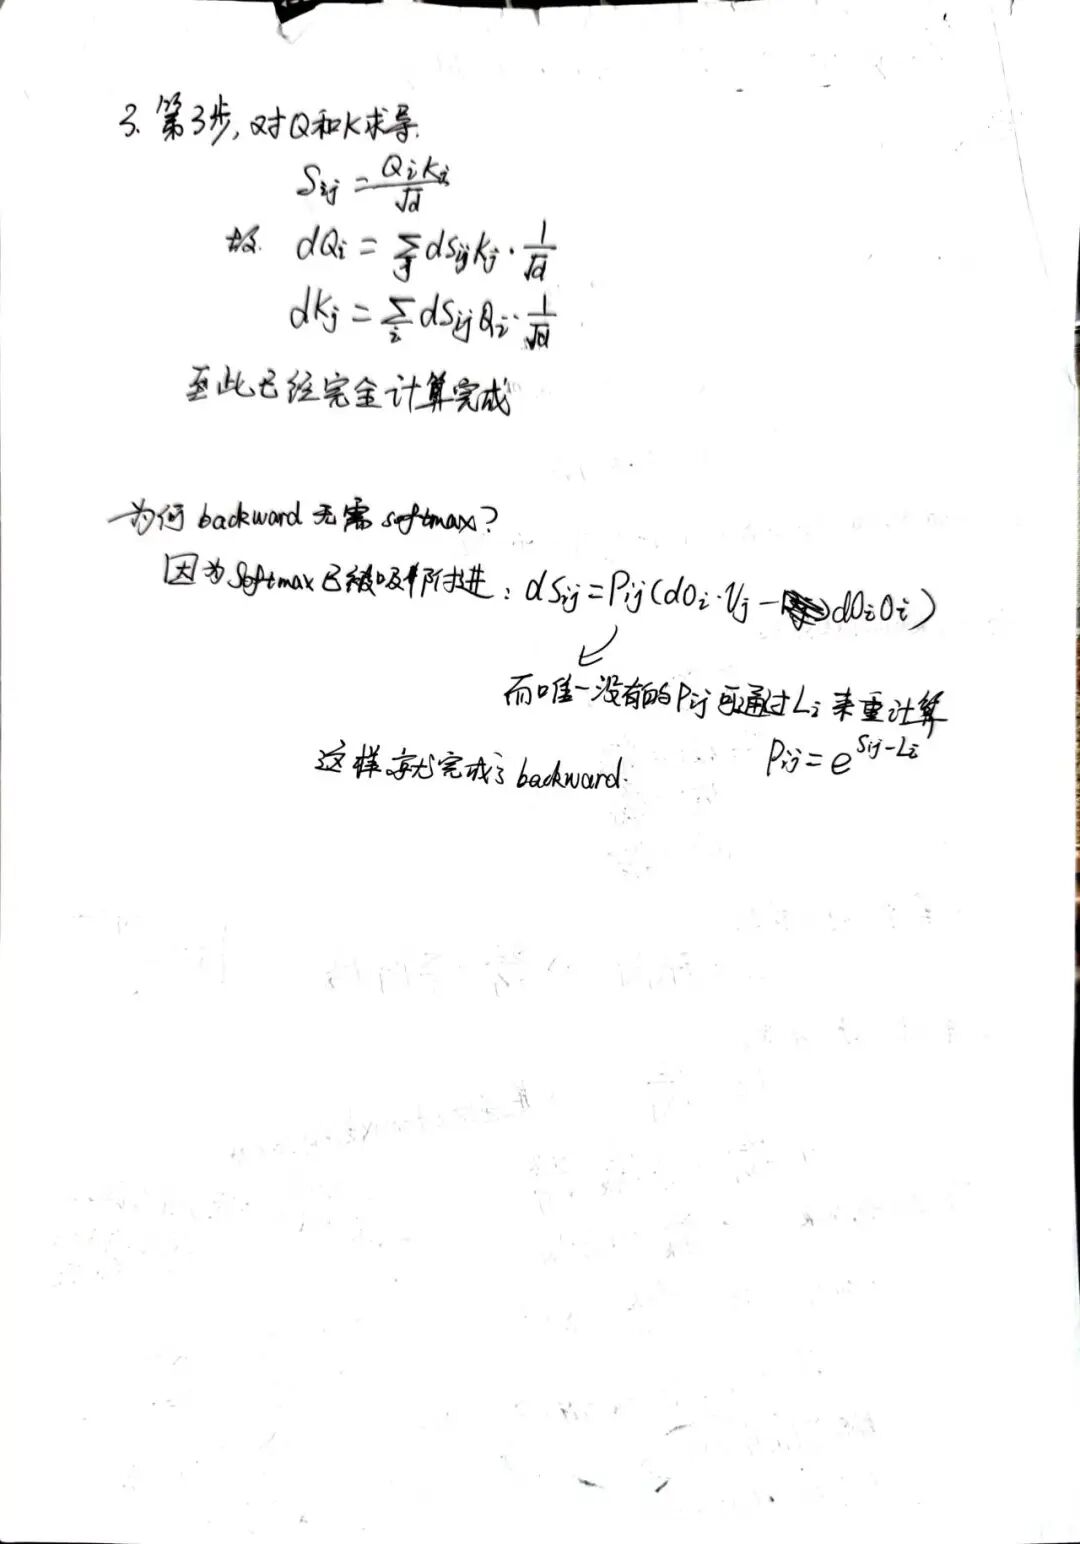 3. 第3步, 对Q和K求导.
Sij = QiKj/√d
故 dQi = Σj dSijKj · 1/√d
dKj = Σi dSijQi · 1/√d
至此已经完全计算完成
为何 backward 无需 softmax?
因为 Softmax 已被吸 进: dSij = Pij(dOi·Vj - dOiOi)
而唯一没有的Pij可通过Li来重计算
Pij = e^(Sij-Li)
这样就完成了 backward.